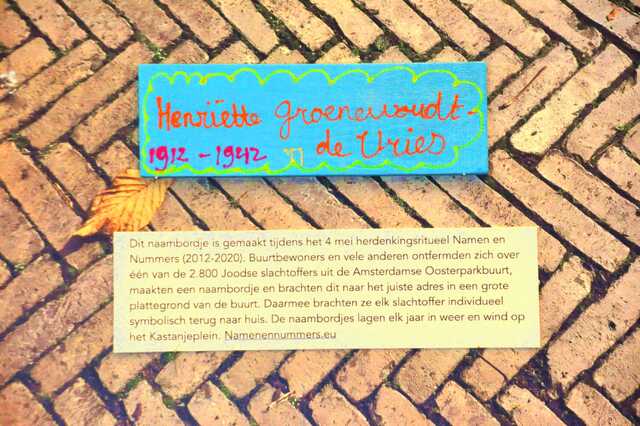 Henriëtte Groenewoudt-
de Vries
1912 - 1942
Dit naambordje is gemaakt tijdens het 4 mei herdenkingsritueel Namen en
Nummers (2012-2020). Buurtbewoners en vele anderen ontfermden zich over
één van de 2.800 Joodse slachtoffers uit de Amsterdamse Oosterparkbuurt,
maakten een naambordje en brachten dit naar het juiste adres in een grote
plattegrond van de buurt. Daarmee brachten ze elk slachtoffer individueel
symbolisch terug naar huis. De naambordjes lagen elk jaar in weer en wind op
het Kastanjeplein. Namenennummers.eu